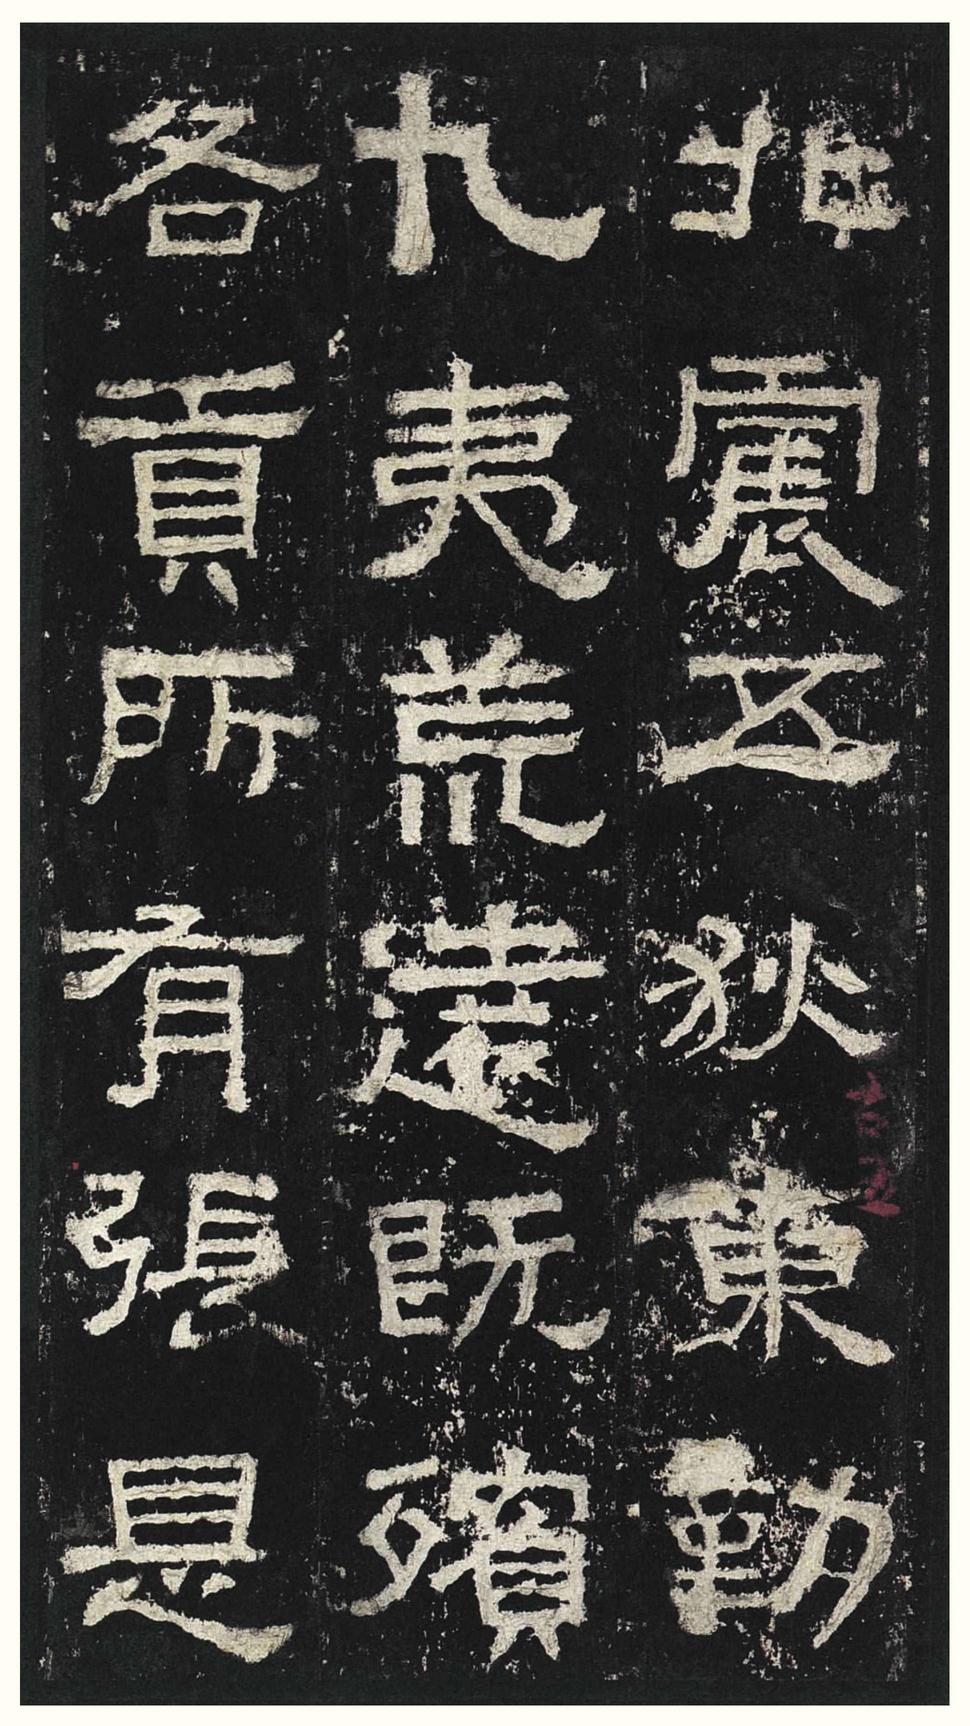 北震五狄東勤
九夷荒遠既殯
各貢所有張是